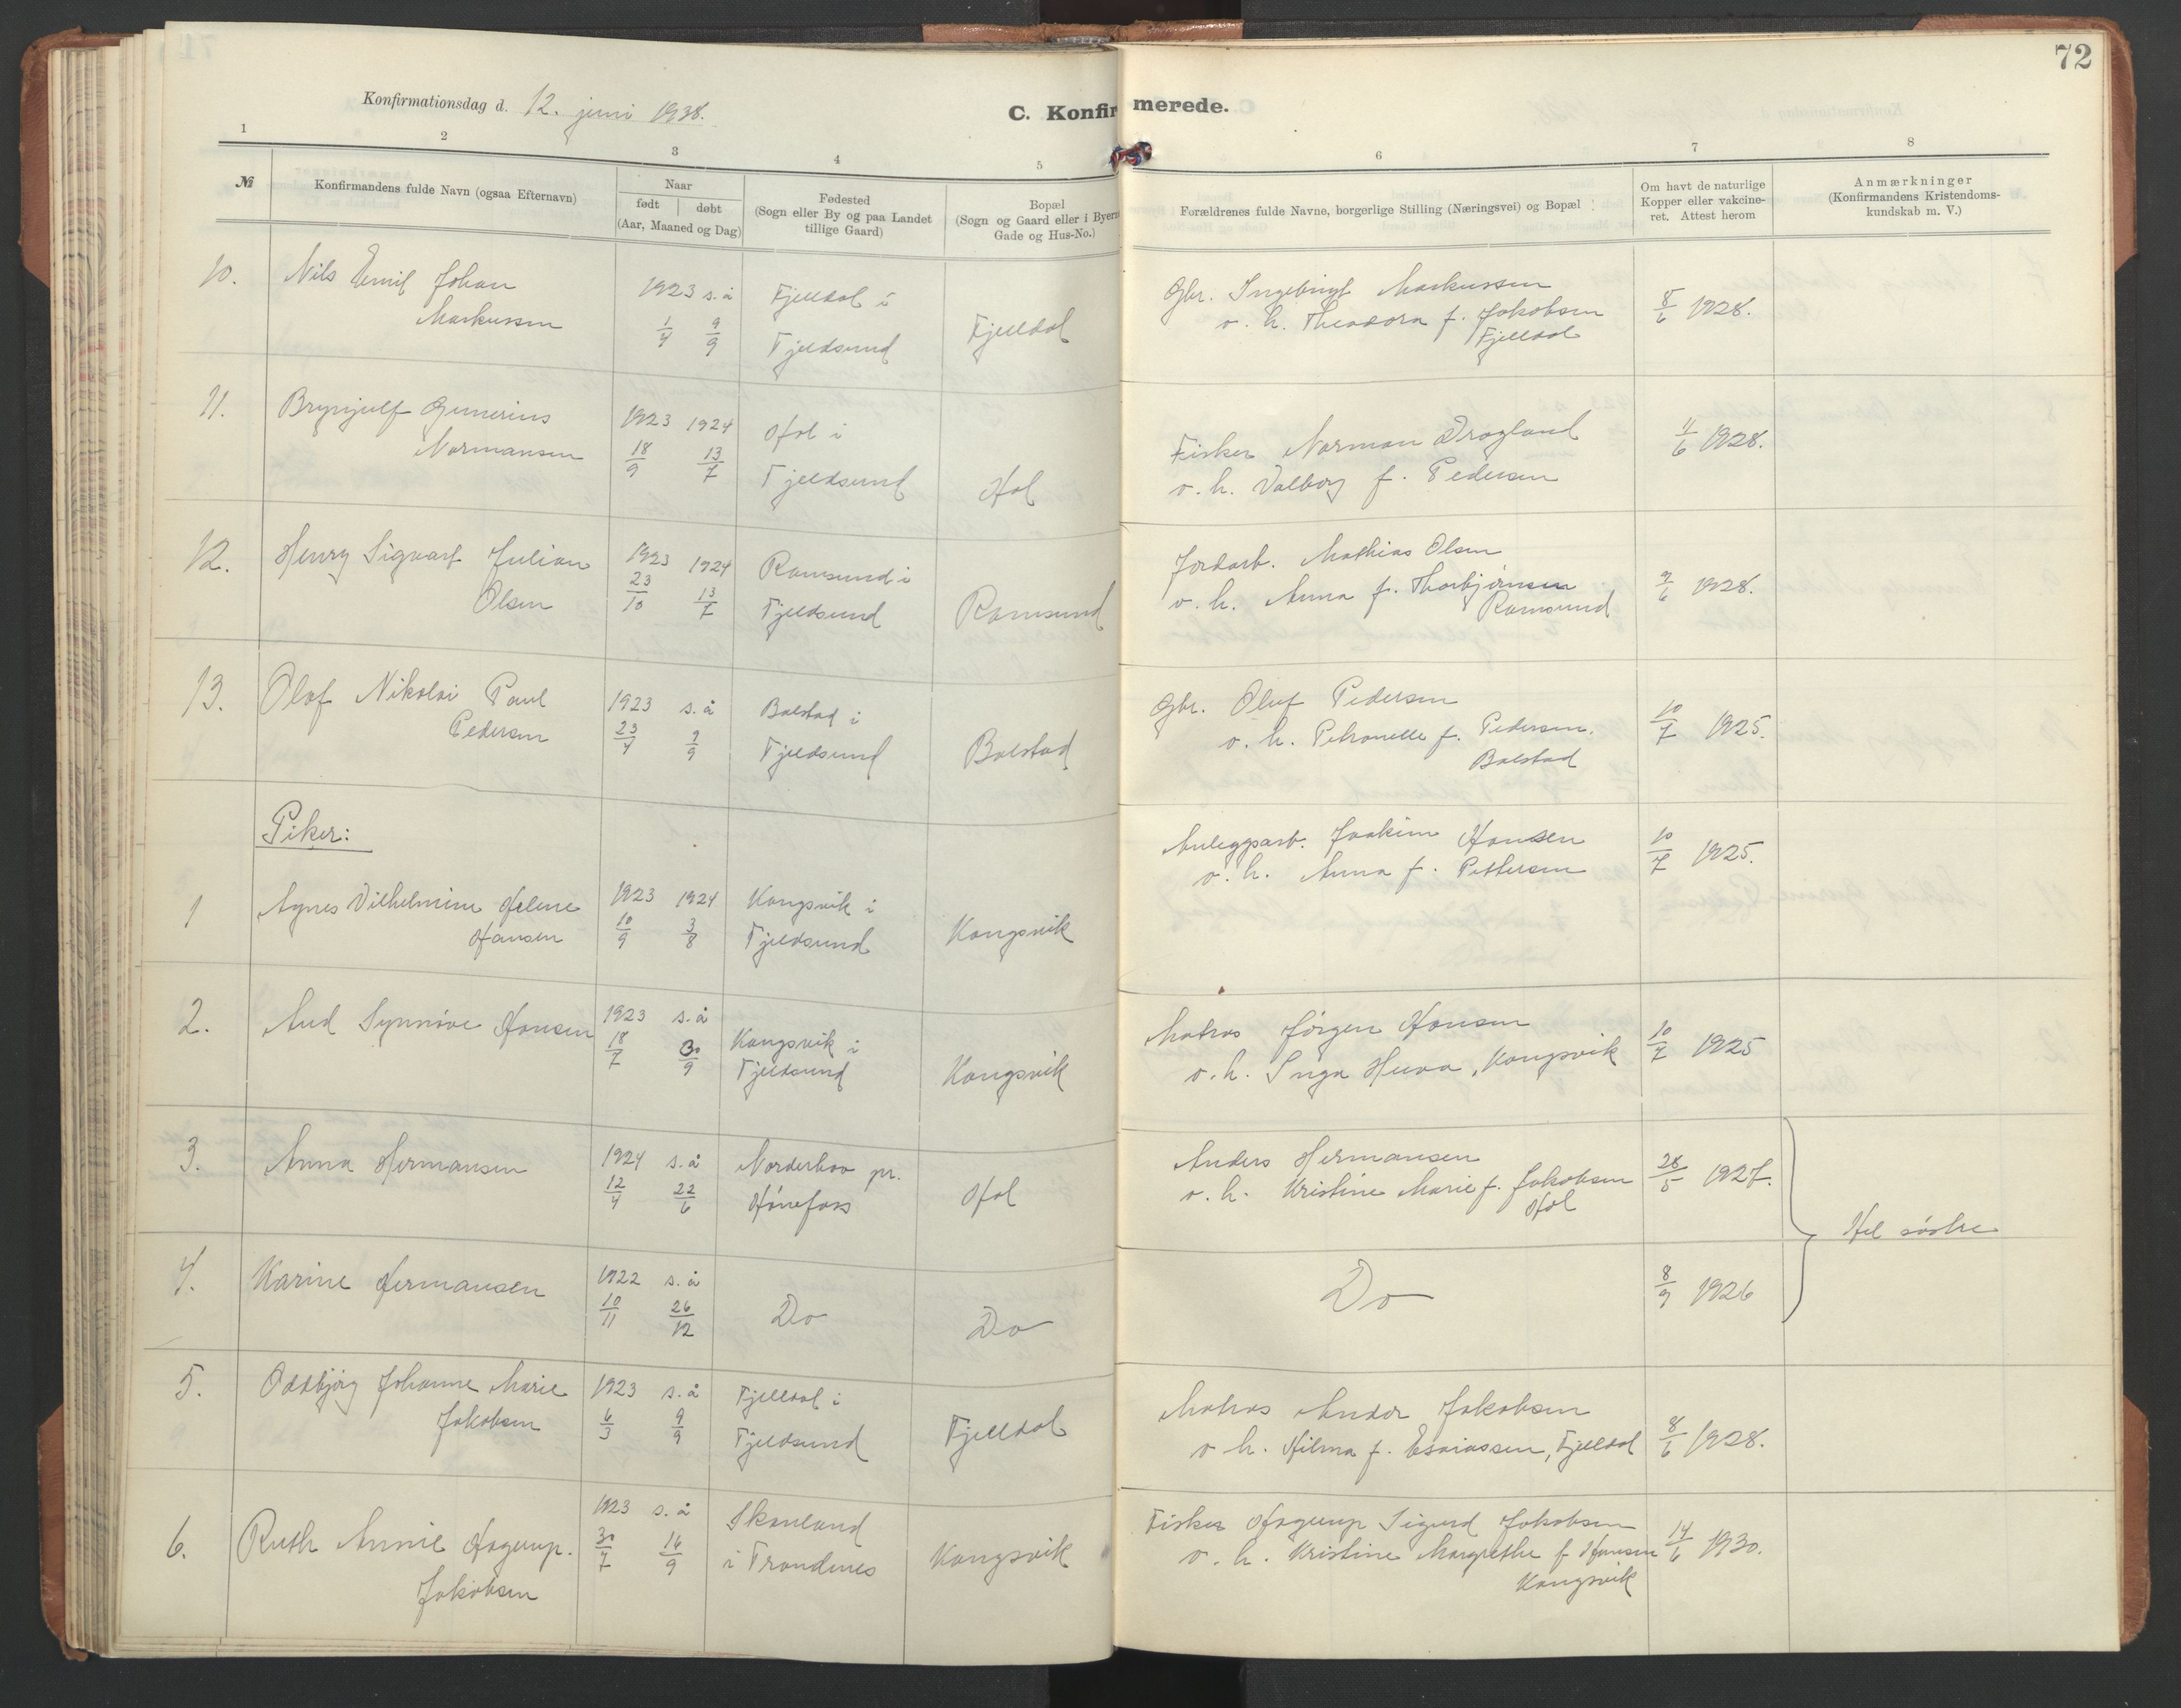 72
Konfirmationsdag d. 12. juni 1938.
C. Konfirmerede.
1 2 3 4 5 6 7 8
№
Konfirmandens fulde Navn (ogsaa Efternavn)
Naar
født | døbt
(Aar, Maaned og Dag)
Fødested
(Sogn eller By og paa Landet
tillige Gaard)
Bopæl
(Sogn og Gaard eller i Byerne
Gade og Hus-No.)
Forældrenes fulde Navne, borgerlige Stilling (Næringsvei) og Bopæl
Om havt de naturlige
Kopper eller vakcine-
ret. Attest herom
Anmærkninger
(Konfirmandens Kristendoms-
kundskab m. V.)
10. Nils Emil Johan
Markussen
1923 s.å
1/4 9/9
Fjelldal i
Fjeldsund
Fjelldal
Gbr. Ingebrigt Markussen
o. h. Theodora f. Jakobsen
Fjelldal
8/6 1928.
11. Brynjulf Gunerius
Normansen
1923 1924
18/9 13/7
Hol i
Fjeldsund
Hol
Fisker Norman Dragland
o. h. Valborg f. Pedersen
11/6 1928.
12. Henry Sigvart Julian
Olsen
1923 1924
23/10 13/7
Ramsund i
Fjeldsund
Ramsund
Jordarb. Mathias Olsen
o. h. Anna f. Thorbjørnsen
Ramsund
9/6 1928.
13. Olaf Nikolai Paul
Pedersen
1923 s.å
23/4 9/9
Balstad i
Fjeldsund
Balstad
Gbr. Oluf Pedersen
o. h. Petronelle f. Pedersen.
Balstad
10/7 1925.
Piker:
1 Agnes Vilhelmine Helene
Hansen
1923 1924
10/9 3/8
Kongsvik i
Fjeldsund
Kongsvik
Anleggsarb. Joakim Hansen
o. h. Anna f. Pettersen
10/7 1925.
2. Aud Synnöve Hansen
1923 s.å
18/7 30/9
Kongsvik i
Fjeldsund
Kongsvik
Matros Jörgen Hansen
o. h. Inga Huva, Kongsvik
10/7 1925
3. Anna Hermansen
1924 s.å
12/4 22/6
Norderhov pr.
Hönefoss
Hol
Anders Hermansen
o. h. Kristine Marie f. Jakobsen
Hol
28/5 1927.
Hel söstre
4. Karine Hermansen
1922 s.å
10/11 26/12
Do
Do
Do
8/9 1926
5. Oddbjörg Johanne Marie
Jakobsen
1923 s.å
6/3 9/9
Fjelldal i
Fjeldsund
Fjelldal
Matros Andor Jakobsen
o h. Hilma f. Esaiassen, Fjelldal
8/6 1928.
6. Ruth Annie Hagerup.
Jakobsen
1923 s.å
30/7 16/9
Skånland
i Trondenes
Kongsvik
Fisker Hagerup Sigurd Jakobsen
o. h. Kristine Margrethe f Hansen
Kongsvik
14/6 1930.